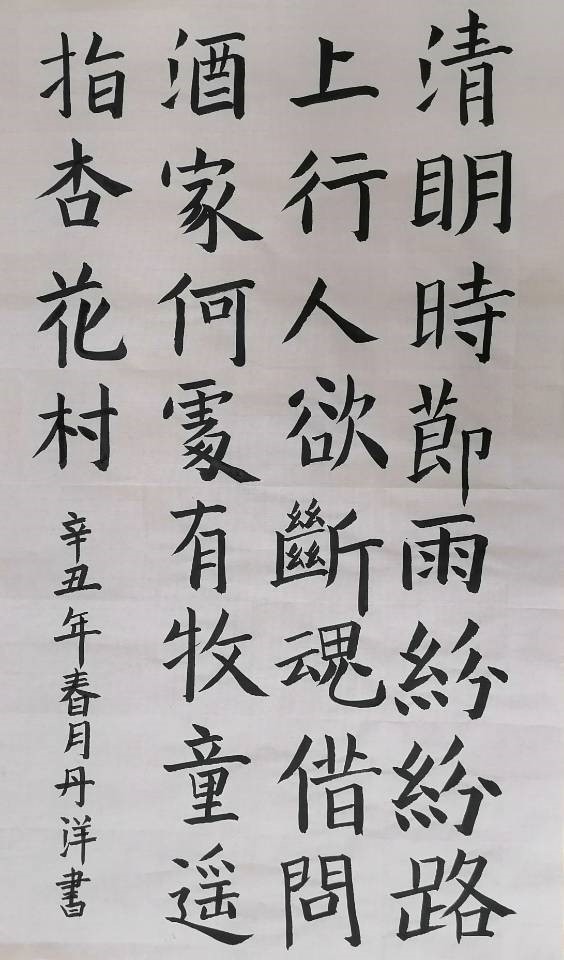 清明時節雨紛紛路
上行人欲斷魂借問
酒家何處有牧童遥
指杏花村
辛丑年春月丹洋書